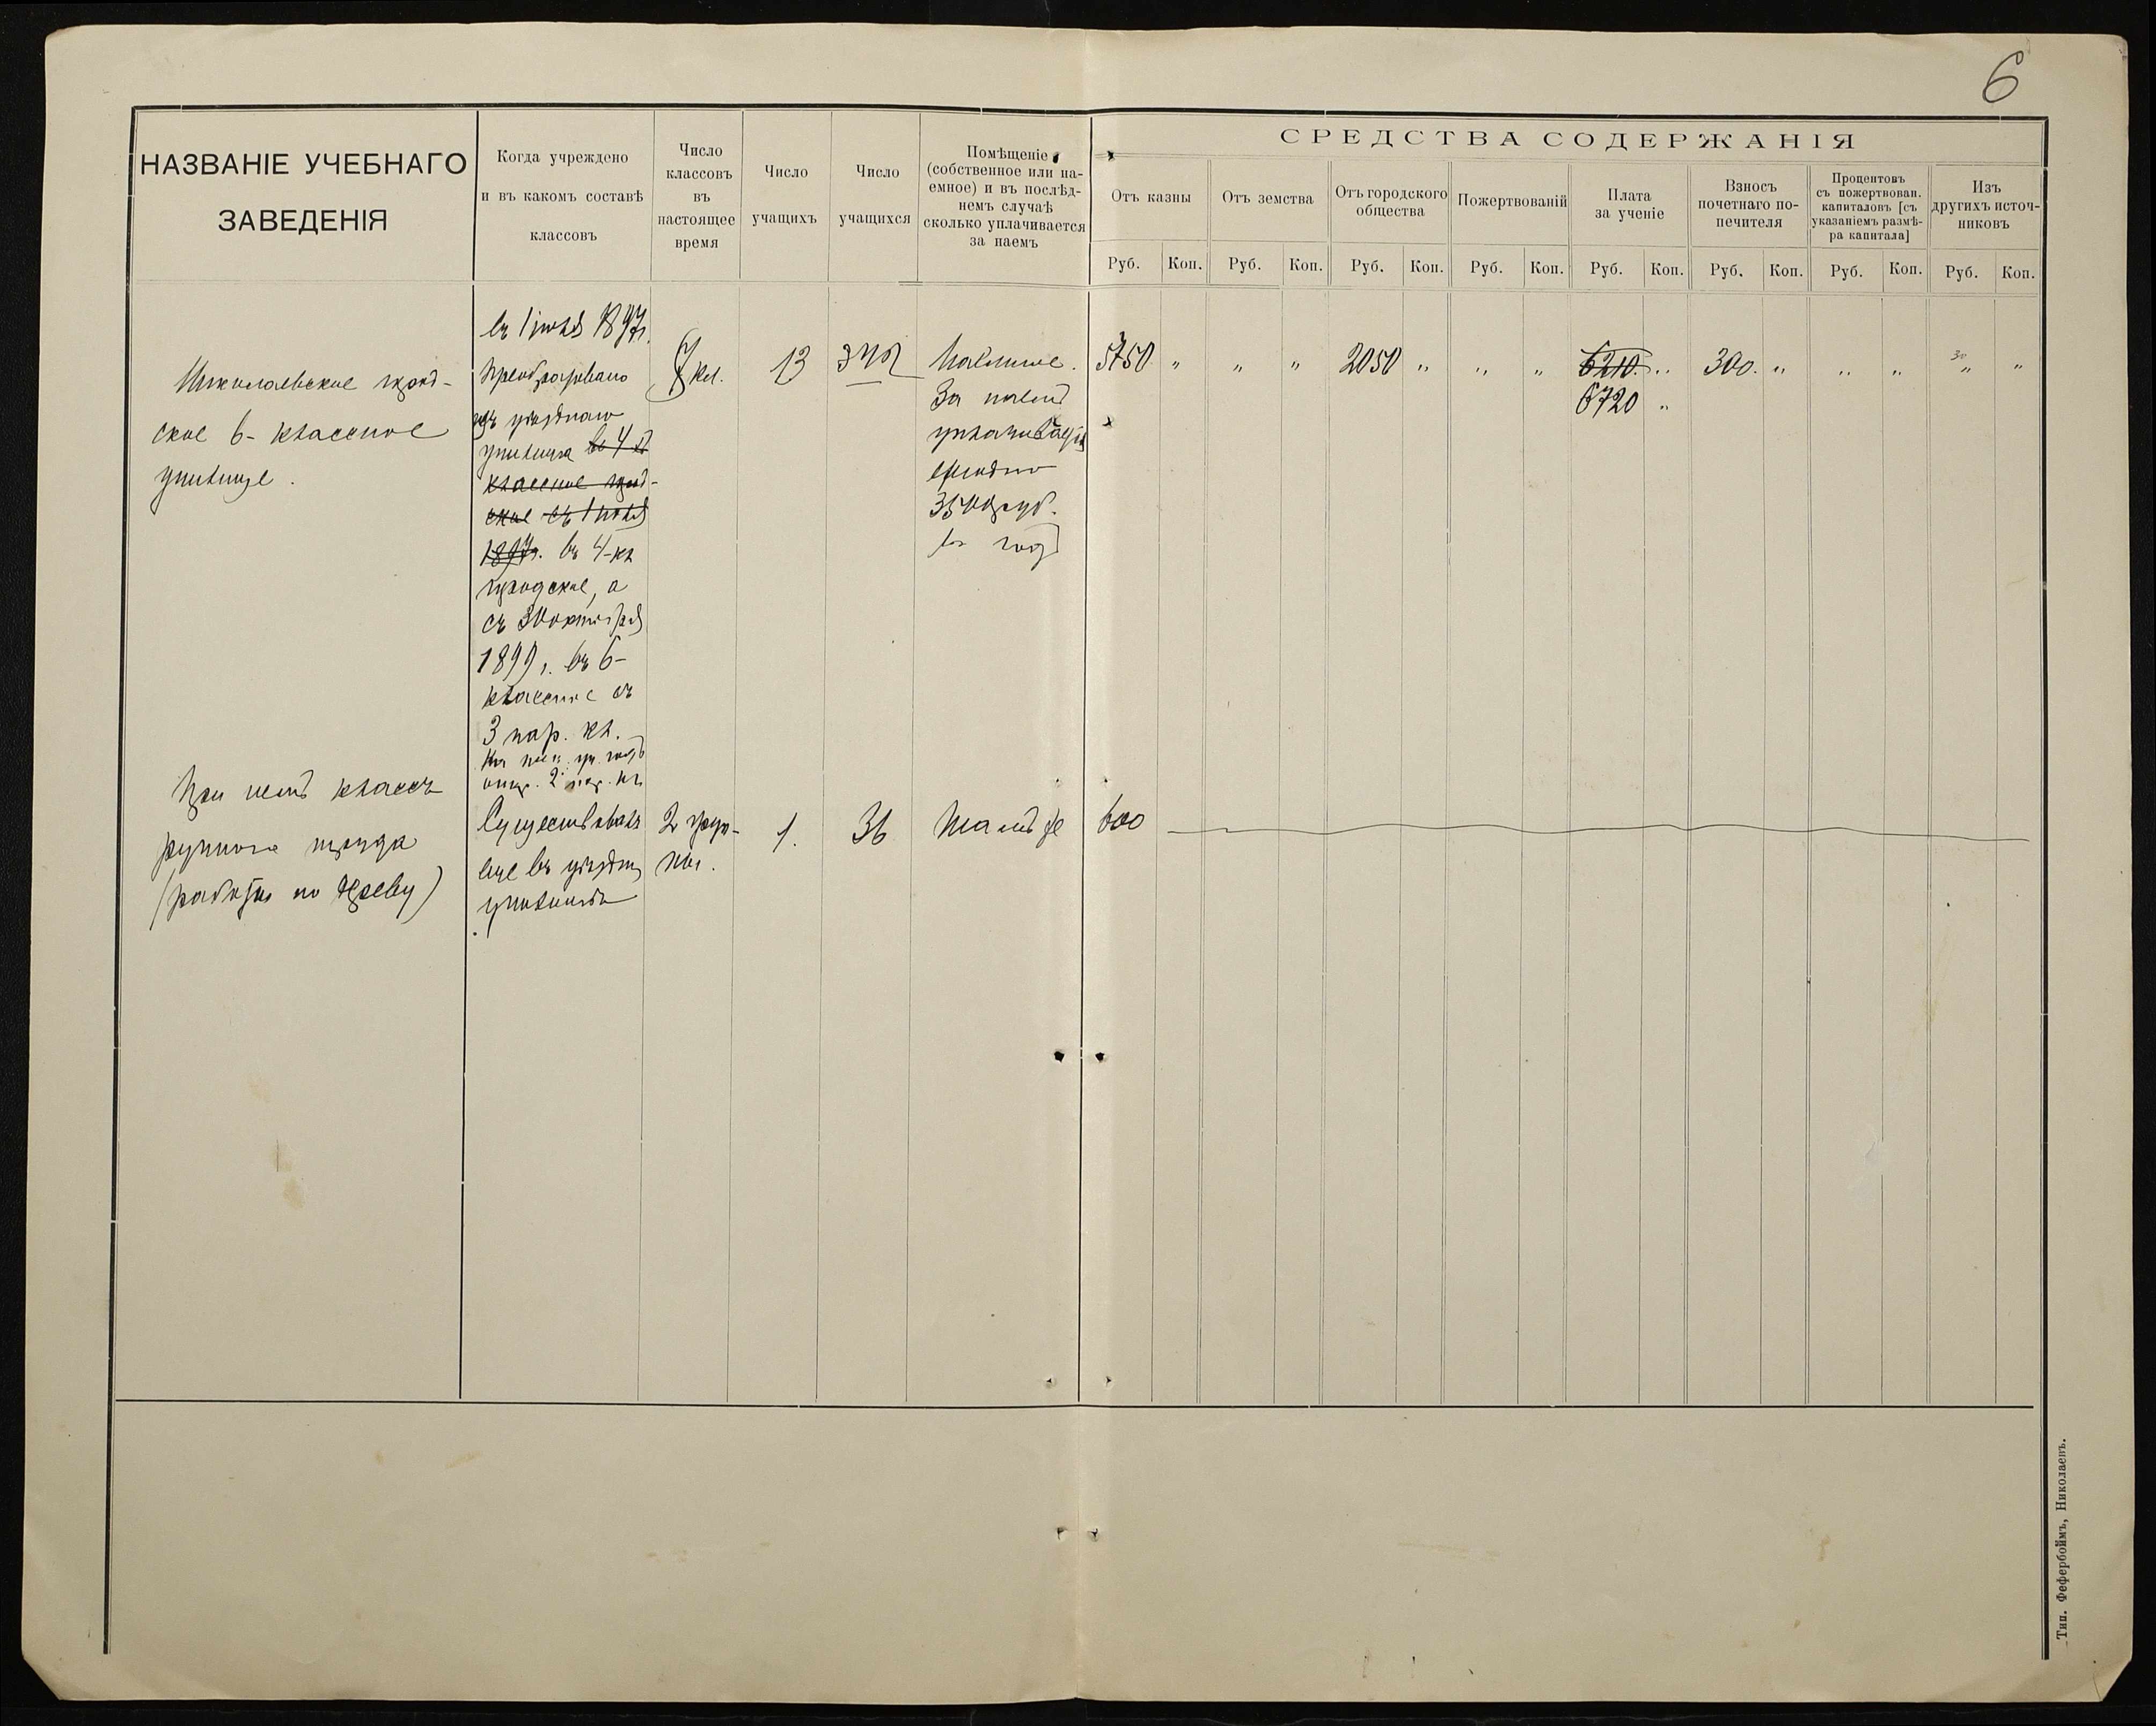 6
НАЗВАНІЕ УЧЕБНАГО
ЗАВЕДЕНІЯ
Когда учреждено
и въ какомъ составѣ
классовъ
Число
классовъ
въ
настоящее
время
Число
учащихъ
Число
учащихся
Помѣщеніе
(собственное или на-
емное) и въ послѣд-
немъ случаѣ
сколько уплачивается
за наемъ
СРЕДСТВА СОДЕРЖАНІЯ
Отъ казны
Отъ земства
Отъ городского
общества
Пожертвованій
Плата
за ученіе
Взносъ
почетнаго по-
печителя
Процентовъ
съ пожертвован.
капиталовъ [съ
указаніемъ размѣ-
ра капитала]
Изъ
другихъ источ-
никовъ
Руб. Коп. Руб. Коп. Руб. Коп. Руб. Коп. Руб. Коп. Руб. Коп. Руб. Коп. Руб. Коп.
Николаевское город-
ское 6-классное
училище.
въ 1 іюля 1897 г.
преобразовано
изъ уѣзднаго
училища въ 4 х
классное город-
ское съ 1 іюля
1897 г. въ 4-кл
городское, а
съ
1899 г. въ 6-
классное съ
3 пар. кл.
откр. 2 пар. кл
кл.
13
Наемное.
За наемъ
уплачивается
ежегодно
руб.
въ годъ
5750 " " " 2050 " " " 6210. " 300. " " " " "
6720 "
При немъ классъ
ручнаго труда
(работы по дереву)
Существовалъ
еще въ уѣздн
училищѣ
2 груп-
пы.
1.
36
Тамъ же
600
Тип. Фефербоймъ, Николаевъ.